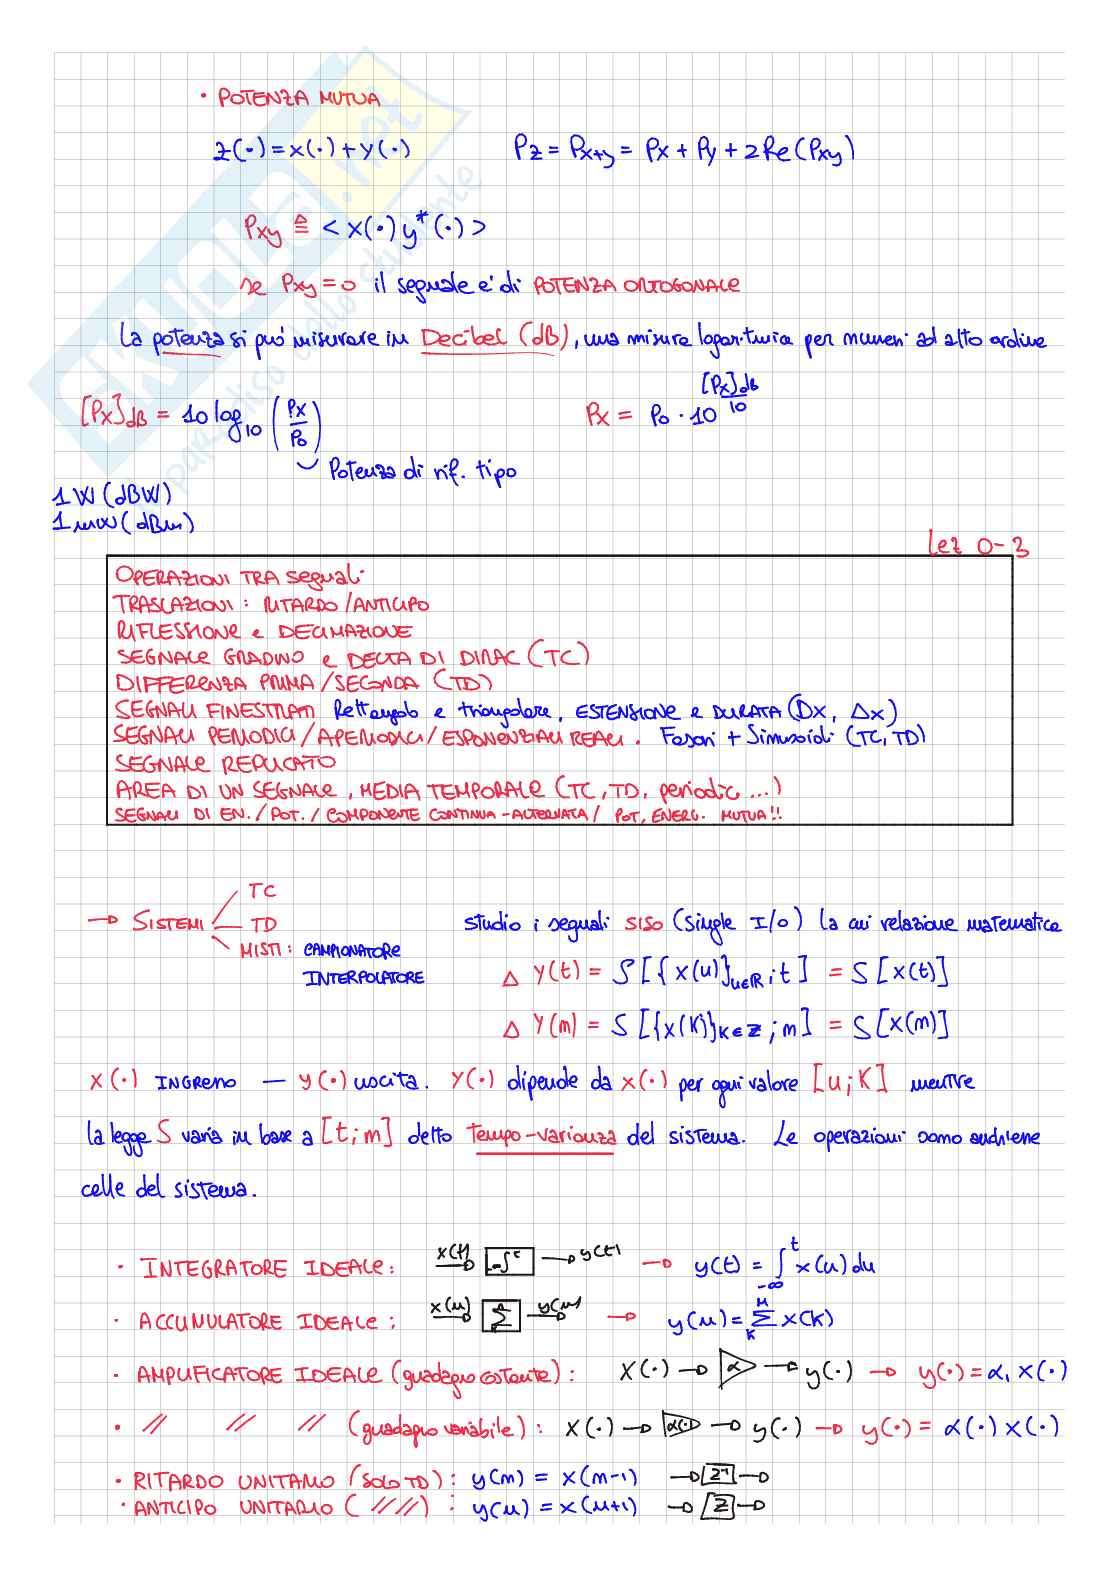 • POTENZA MUTUA
z(·) = x(·) + y(·)    Pz = Px+y = Px + Py + 2Re(Pxy)
Pxy ≜ < x(·) y*(·) >
se Pxy = 0 il segnale e' di POTENZA ORTOGONALE
La potenza si può misurare in Decibel (dB), una misura logaritmica per numeri ad alto ordine
[Px]dB = 10 log10 (Px/P0)    Px = P0 · 10^([Px]dB/10)
Potenza di rif. tipo
1 W (dBW)
1 mW (dBm)
Lez 0-3
OPERAZIONI TRA segnali
TRASLAZIONI: RITARDO/ANTICIPO
RIFLESSIONE e DECIMAZIONE
SEGNALE GRADINO e DELTA DI DIRAC (TC)
DIFFERENZA PRIMA/SECONDA (TD)
SEGNALI FINESTRATI Rettangolo e triangolare, ESTENSIONE e DURATA (Dx, Δx)
SEGNALI PERIODICI/APERIODICI/ESPONENZIALI REALI. Fasori + Sinusoidi (TC, TD)
SEGNALE REPLICATO
AREA DI UN SEGNALE, MEDIA TEMPORALE (TC, TD, periodic...)
SEGNALI DI EN./POT./COMPONENTE CONTINUA-ALTERNATA/ POT, ENERG. MUTUA!!
→ SISTEMI
TC
TD
MISTI: CAMPIONATORE
INTERPOLATORE
studio i segnali SISO (Single I/O) la cui relazione matematica
Δ Y(t) = S[{x(u)}u∈ℝ; t] = S[x(t)]
Δ Y(m) = S[{x(K)}K∈Z; m] = S[x(m)]
x(·) INGRESSO — y(·) uscita. Y(·) dipende da x(·) per ogni valore [u;K] mentre
la legge S varia in base a [t;m] detto tempo-varianza del sistema. Le operazioni sono
celle del sistema.
• INTEGRATORE IDEALE: x(t) → ∫ → y(t) → y(t) = ∫_{-∞}^{t} x(u) du
• ACCUMULATORE IDEALE: x(n) → Σ → y(n) → y(n) = Σ_{K}^{n} x(K)
• AMPLIFICATORE IDEALE (guadagno costante): X(·) → α → y(·) → y(·) = α, X(·)
• // // // (guadagno variabile): X(·) → α(·) → y(·) → y(·) = α(·) x(·)
• RITARDO UNITARIO (SOLO TD): y(m) = x(m-1) → z⁻¹ →
• ANTICIPO UNITARIO ( ////): y(n) = x(n+1) → z →
skuola.net
paradiso dello studente